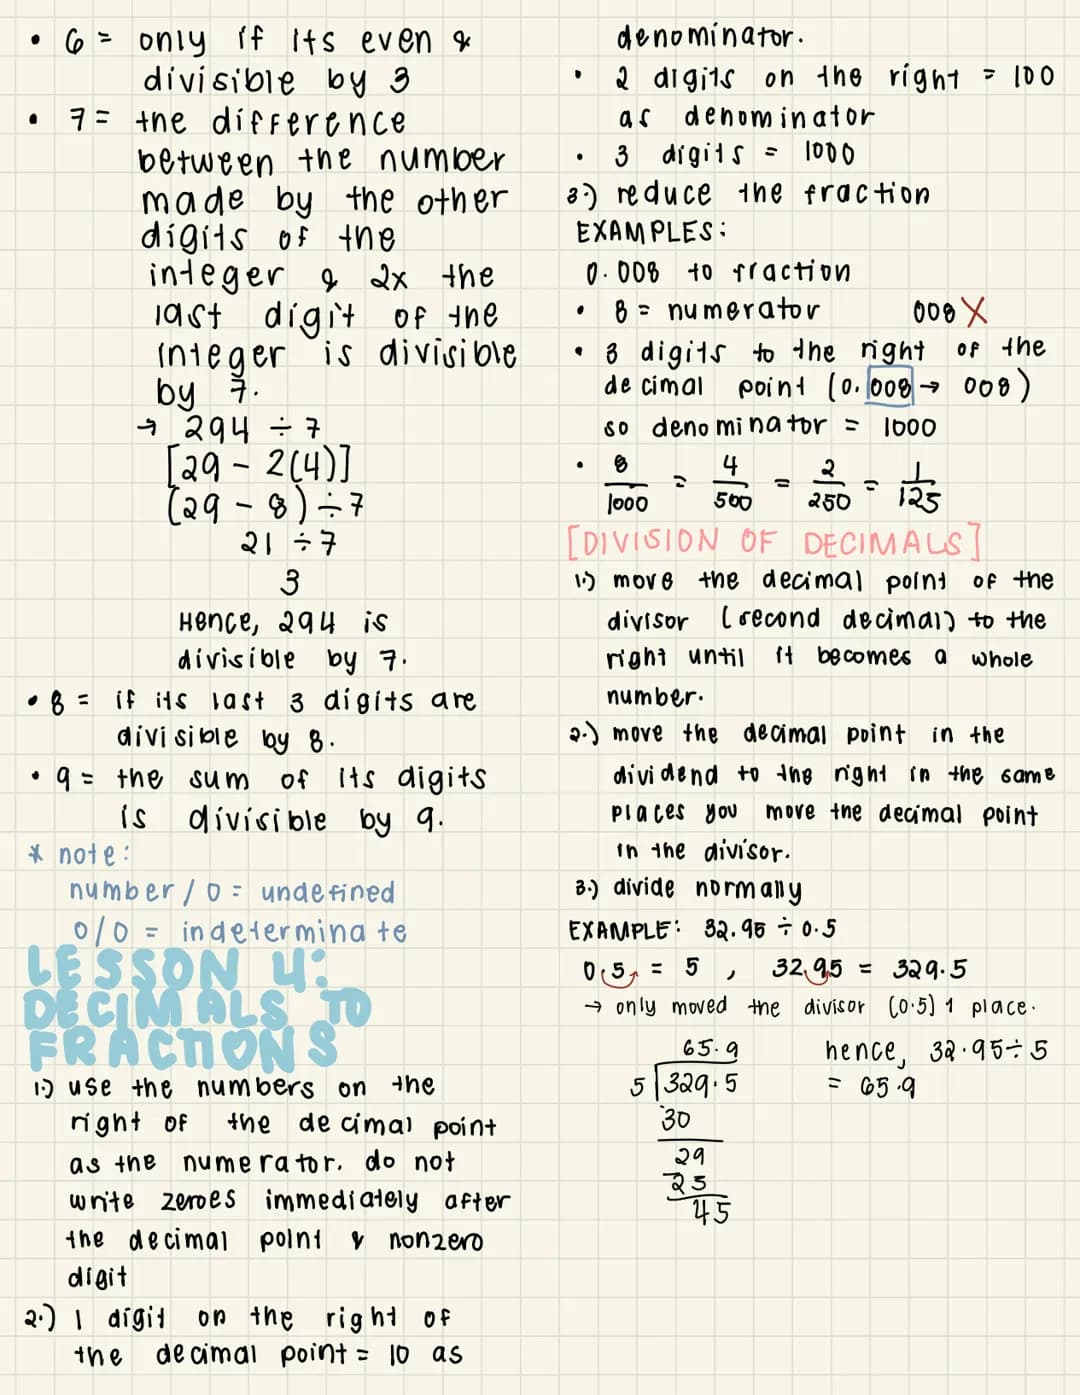 • 6 = only if its even &
divisible by 3
• 7 = the difference
between the number
made by the other
digits of the
integer & 2x the
last digit of the
integer is divisible
by 7.
→ 294 ÷ 7
[29 - 2(4)]
(29 - 8) ÷ 7
21 ÷ 7
3
Hence, 294 is
divisible by 7.
• 8 = if its last 3 digits are
divisible by 8.
• 9 = the sum of its digits
is divisible by 9.
* note:
number / 0 = undefined
0/0 = indeterminate
LESSON 4:
DECIMALS TO
FRACTIONS
1.) use the numbers on the
right of the decimal point
as the numerator. do not
write zeroes immediately after
the decimal point & nonzero
digit
2.) 1 digit on the right of
the decimal point = 10 as
denominator.
• 2 digits on the right = 100
as denominator
• 3 digits = 1000
3.) reduce the fraction
EXAMPLES:
0.008 to fraction
• 8 = numerator 008 X
• 3 digits to the right of the
decimal point (0.008 → 008)
so denominator = 1000
• 8/1000 = 4/500 = 2/250 = 1/125
[DIVISION OF DECIMALS]
1.) move the decimal point of the
divisor (second decimal) to the
right until it becomes a whole
number.
2.) move the decimal point in the
dividend to the right in the same
places you move the decimal point
in the divisor.
3.) divide normally
EXAMPLE: 32.95 ÷ 0.5
0.5 = 5 , 32.95 = 329.5
→ only moved the divisor (0.5) 1 place.
65.9
5 329.5
30
29
25
45
hence, 32.95 ÷ 5
= 65.9